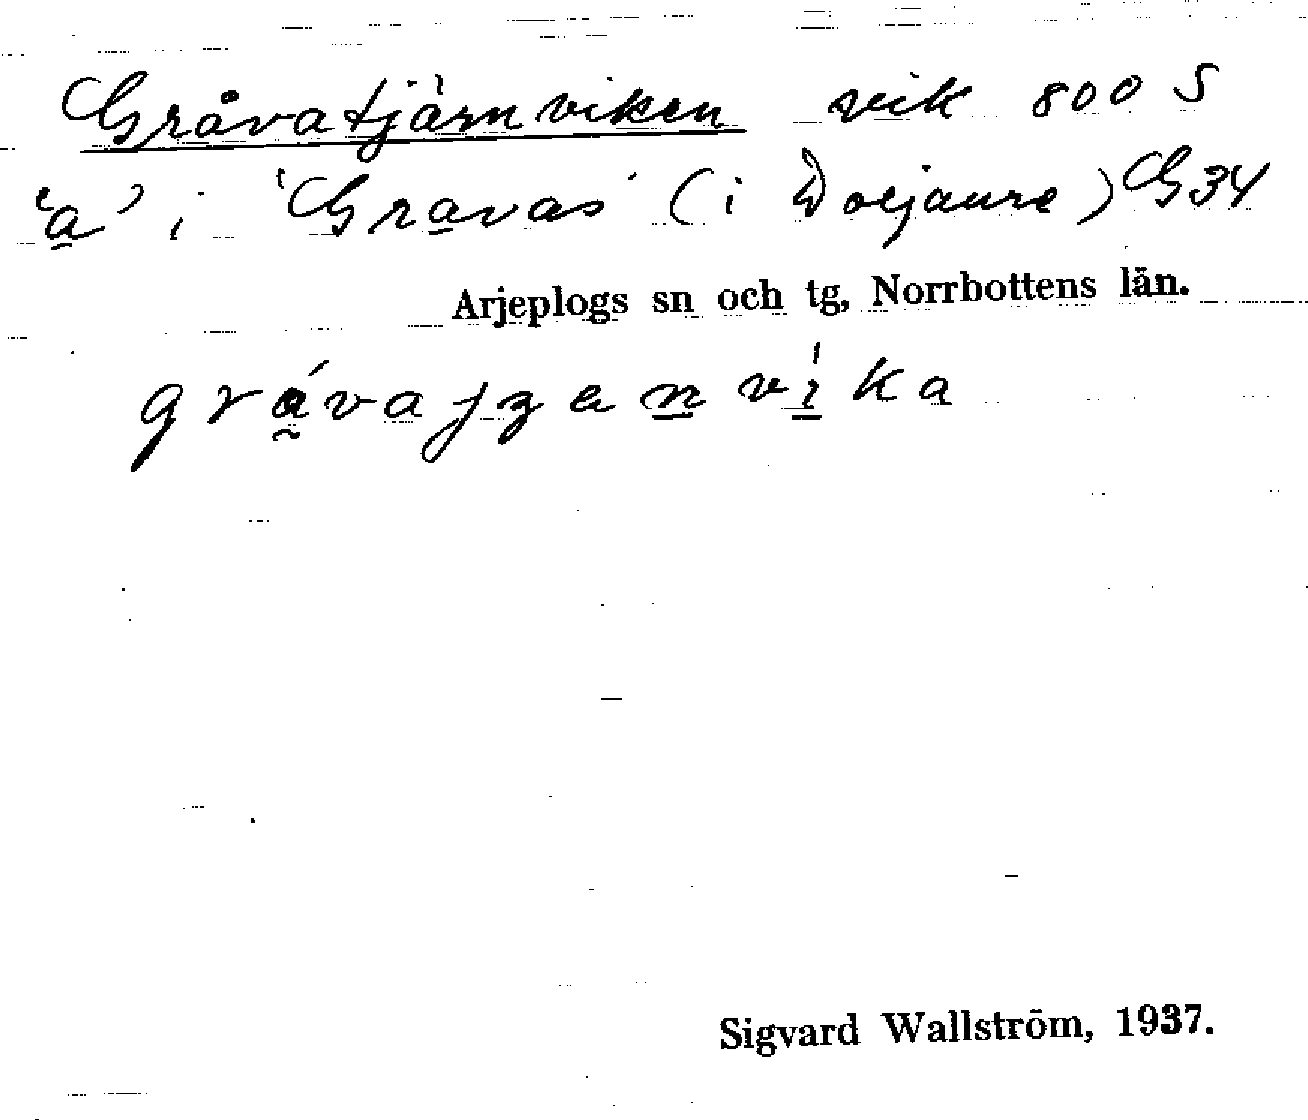 Gråvatjärnviken vik 800 S
'a' i 'Gravas' (i Doljaure) G34
Arjeplogs sn och tg, Norrbottens län.
grávajzenvíka
Sigvard Wallström, 1937.